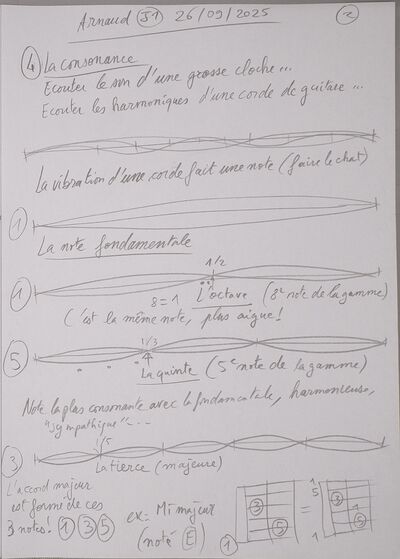 Arnaud J1 26/09/2025 2
4 La consonance
Ecouter le son d'une grosse cloche...
Ecouter les harmoniques d'une corde de guitare...
La vibration d'une corde fait une note (faire le chat)
1
La note fondamentale
1/2
1
8 = 1 L'octave (8e note de la gamme)
C'est la même note, plus aigue!
1/3
5
La quinte (5e note de la gamme)
Note la plus consonante avec la fondamentale, harmonieuse,
"sympathique"...
1/5
3
La tierce (majeure)
L'accord majeur
est formé de ces
3 notes! 1 3 5
ex: Mi majeur
(noté E)
1 3 5 = 1 5 3 1 5 1